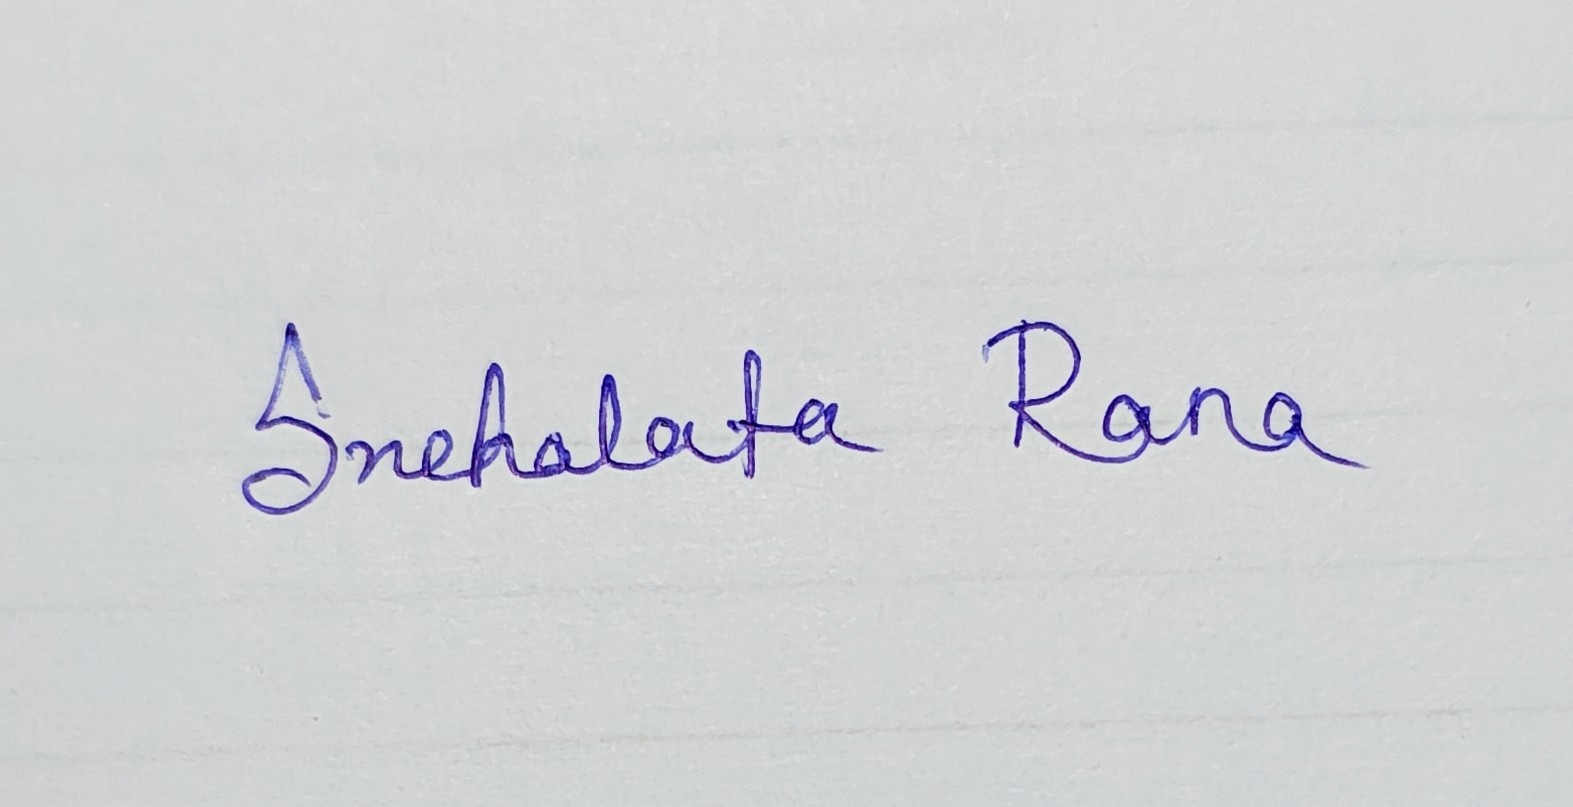 Snehalata Rana